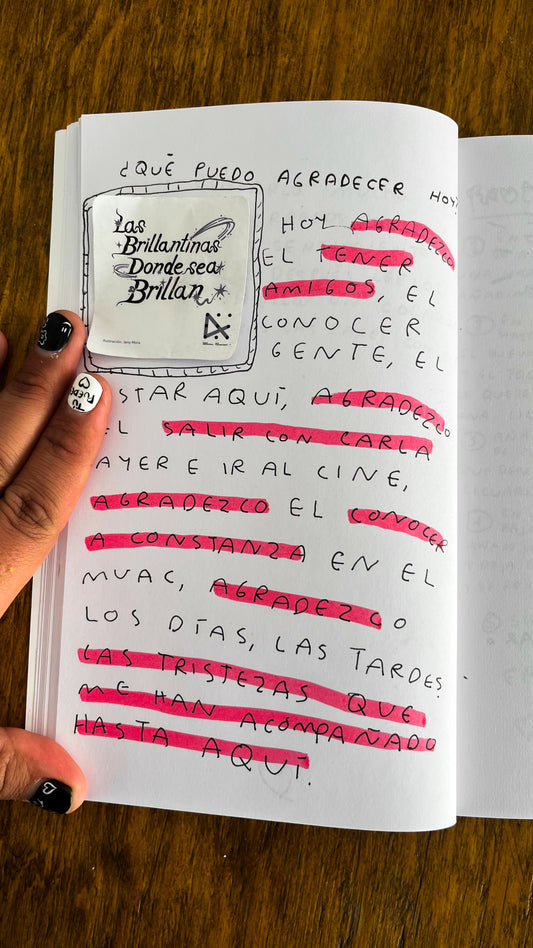 ¿QUÉ PUEDO AGRADECER HOY?
Las
Brillantinas
Donde sea
Brillan
HOY AGRADEZCO
EL TENER
AMIGOS, EL
CONOCER
GENTE, EL
STAR AQUÍ, AGRADEZCO
EL SALIR CON CARLA
AYER E IR AL CINE,
AGRADEZCO EL CONOCER
A CONSTANZA EN EL
MUAC, AGRADEZCO
LOS DÍAS, LAS TARDES
LAS TRISTEZAS QUE
ME HAN ACOMPAÑADO
HASTA AQUÍ.
TÚ
PUEDES